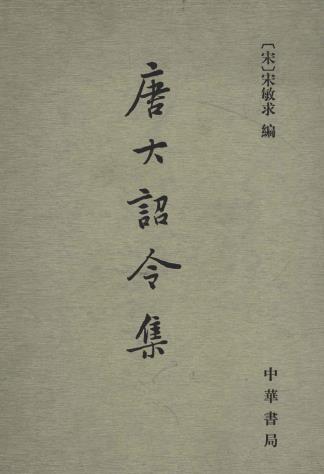 〔宋〕宋敏求 编
唐大詔令集
中華書局